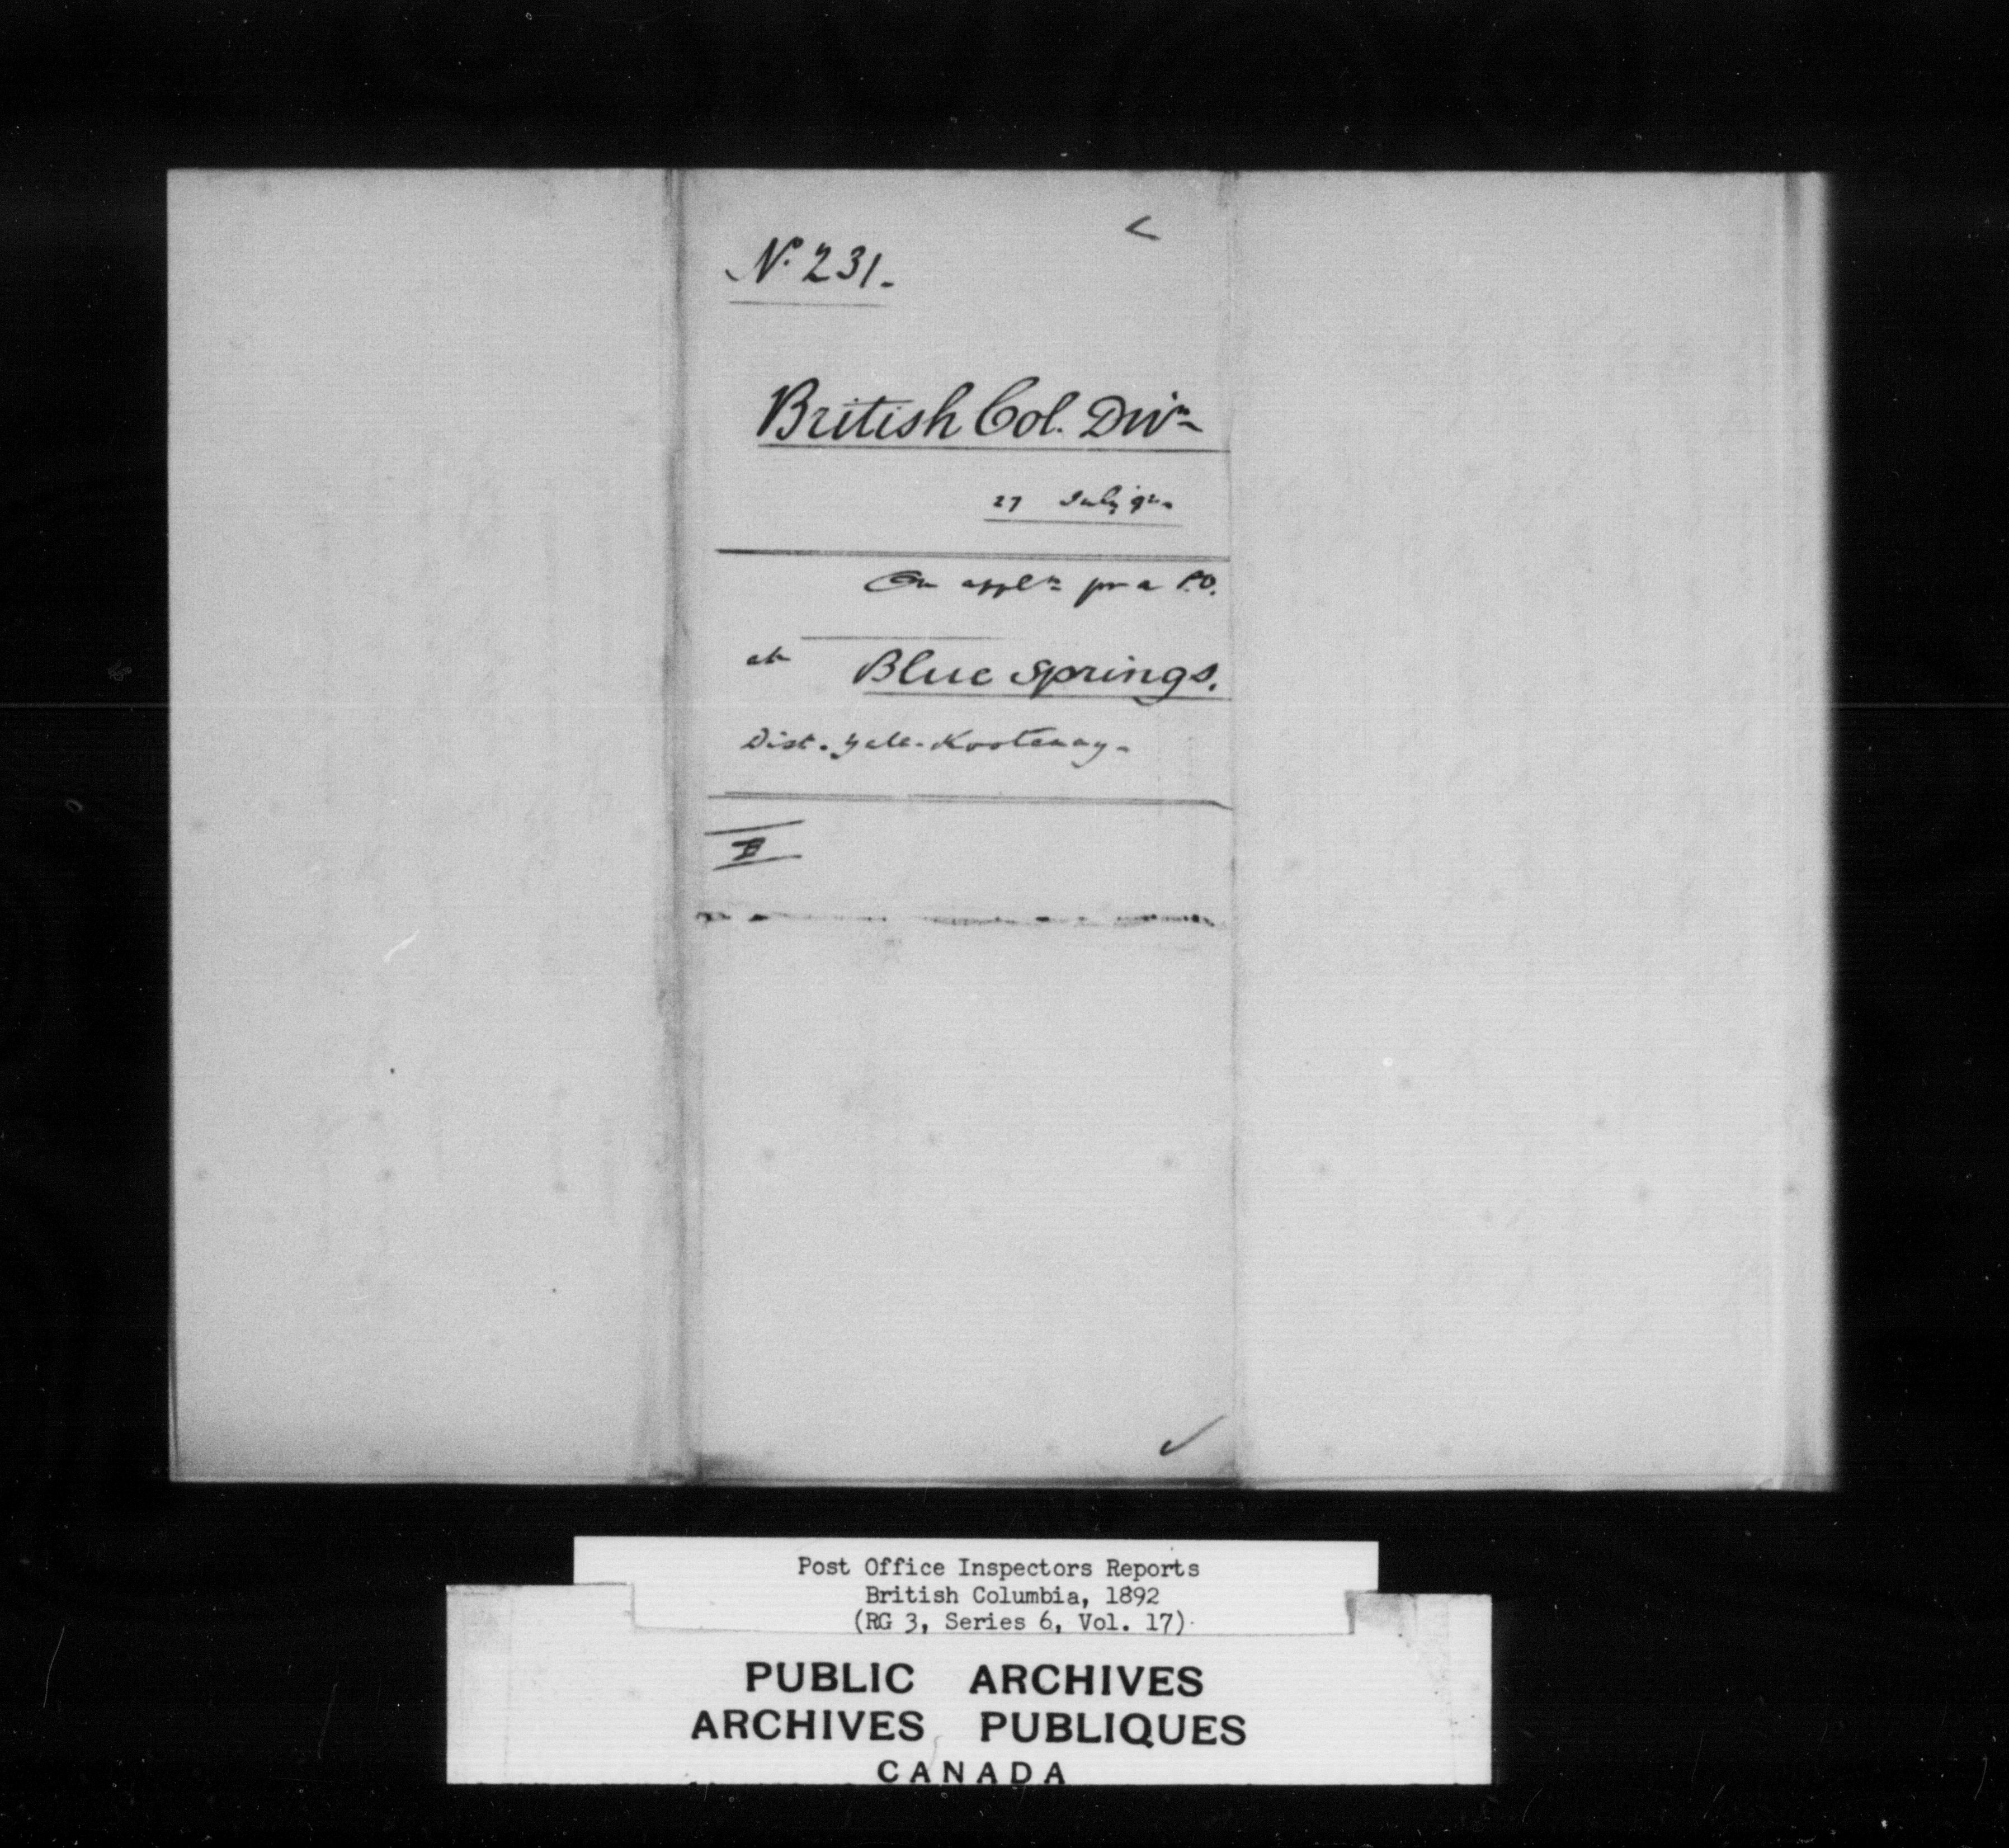 No. 231.
British Col. Divn
27 July 92.
On appln for a P.O.
at Blue Springs.
Dist. Yale-Kootenay.
Post Office Inspectors Reports
British Columbia, 1892
(RG 3, Series 6, Vol. 17)
PUBLIC ARCHIVES
ARCHIVES PUBLIQUES
CANADA